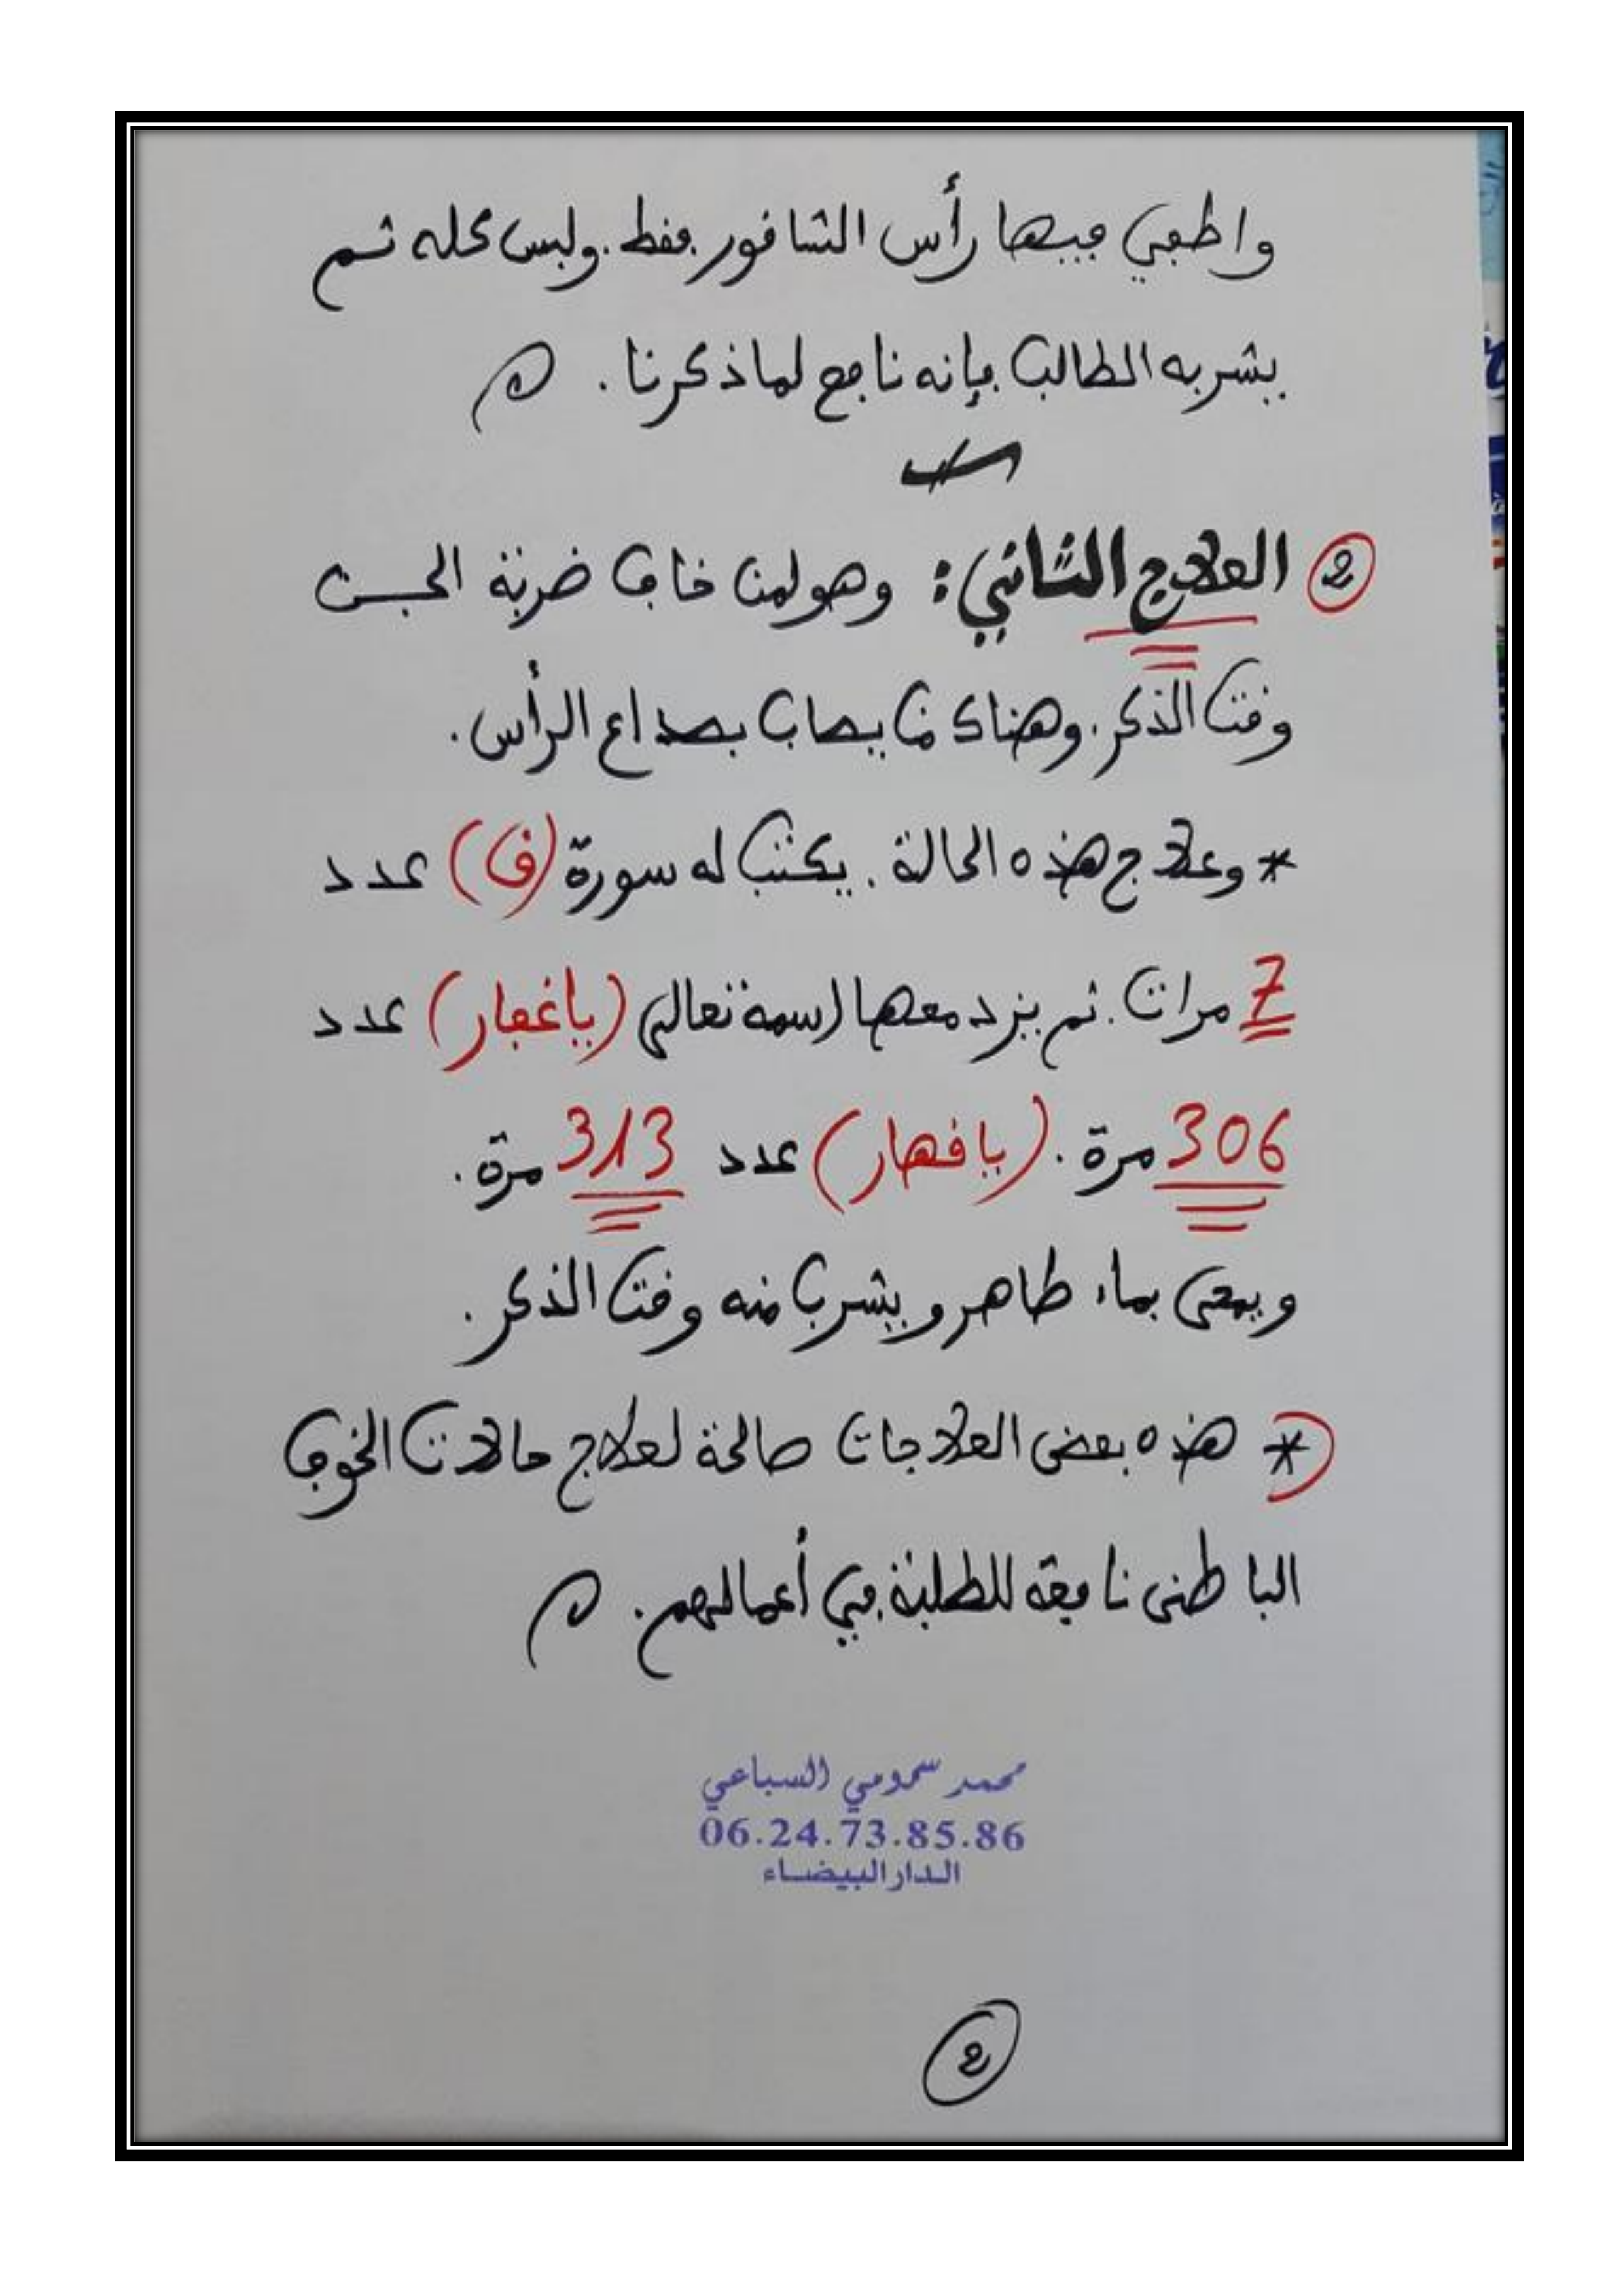 واطفي فيها رأس الشاقور. فقط. وليس كله ثم
يشربه الطالب. فإنه نافع لما ذكرنا. اه
② العلاج الثاني: وهو لمن خاف ضربة الجن
وقت الذكر. وهناك من يصاب بصداع الرأس.
* وعلاج هذه الحالة. يكتب له سورة (ق) عدد
7 مرات. ثم يزد معها اسمه تعالى (ياغفار) عدد
306 مرة. (ياقهار) عدد 313 مرة.
ويمحى بماء طاهر ويشرب منه وقت الذكر.
* هذه بعض العلاجات صالحة لعلاج حالات الخوف
الباطنى نافعة للطلبة في أعمالهم. اه
محمد سمومي السباعي
06.24.73.85.86
الدار البيضاء
2